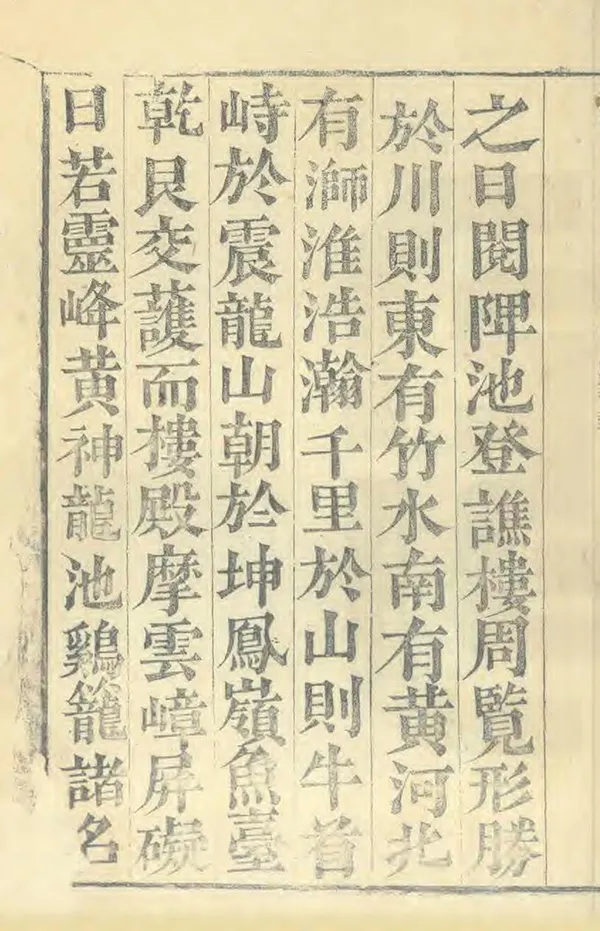 之日閱陴池登譙樓周覽形勝
於川則東有竹水南有黃河北
有㴲淮浩瀚千里於山則牛首
峙於震龍山朝於坤鳳嶺魚臺
乾艮交護而樓殿摩雲嶂屏礙
日若靈峰黃神龍池鷄籠諸名